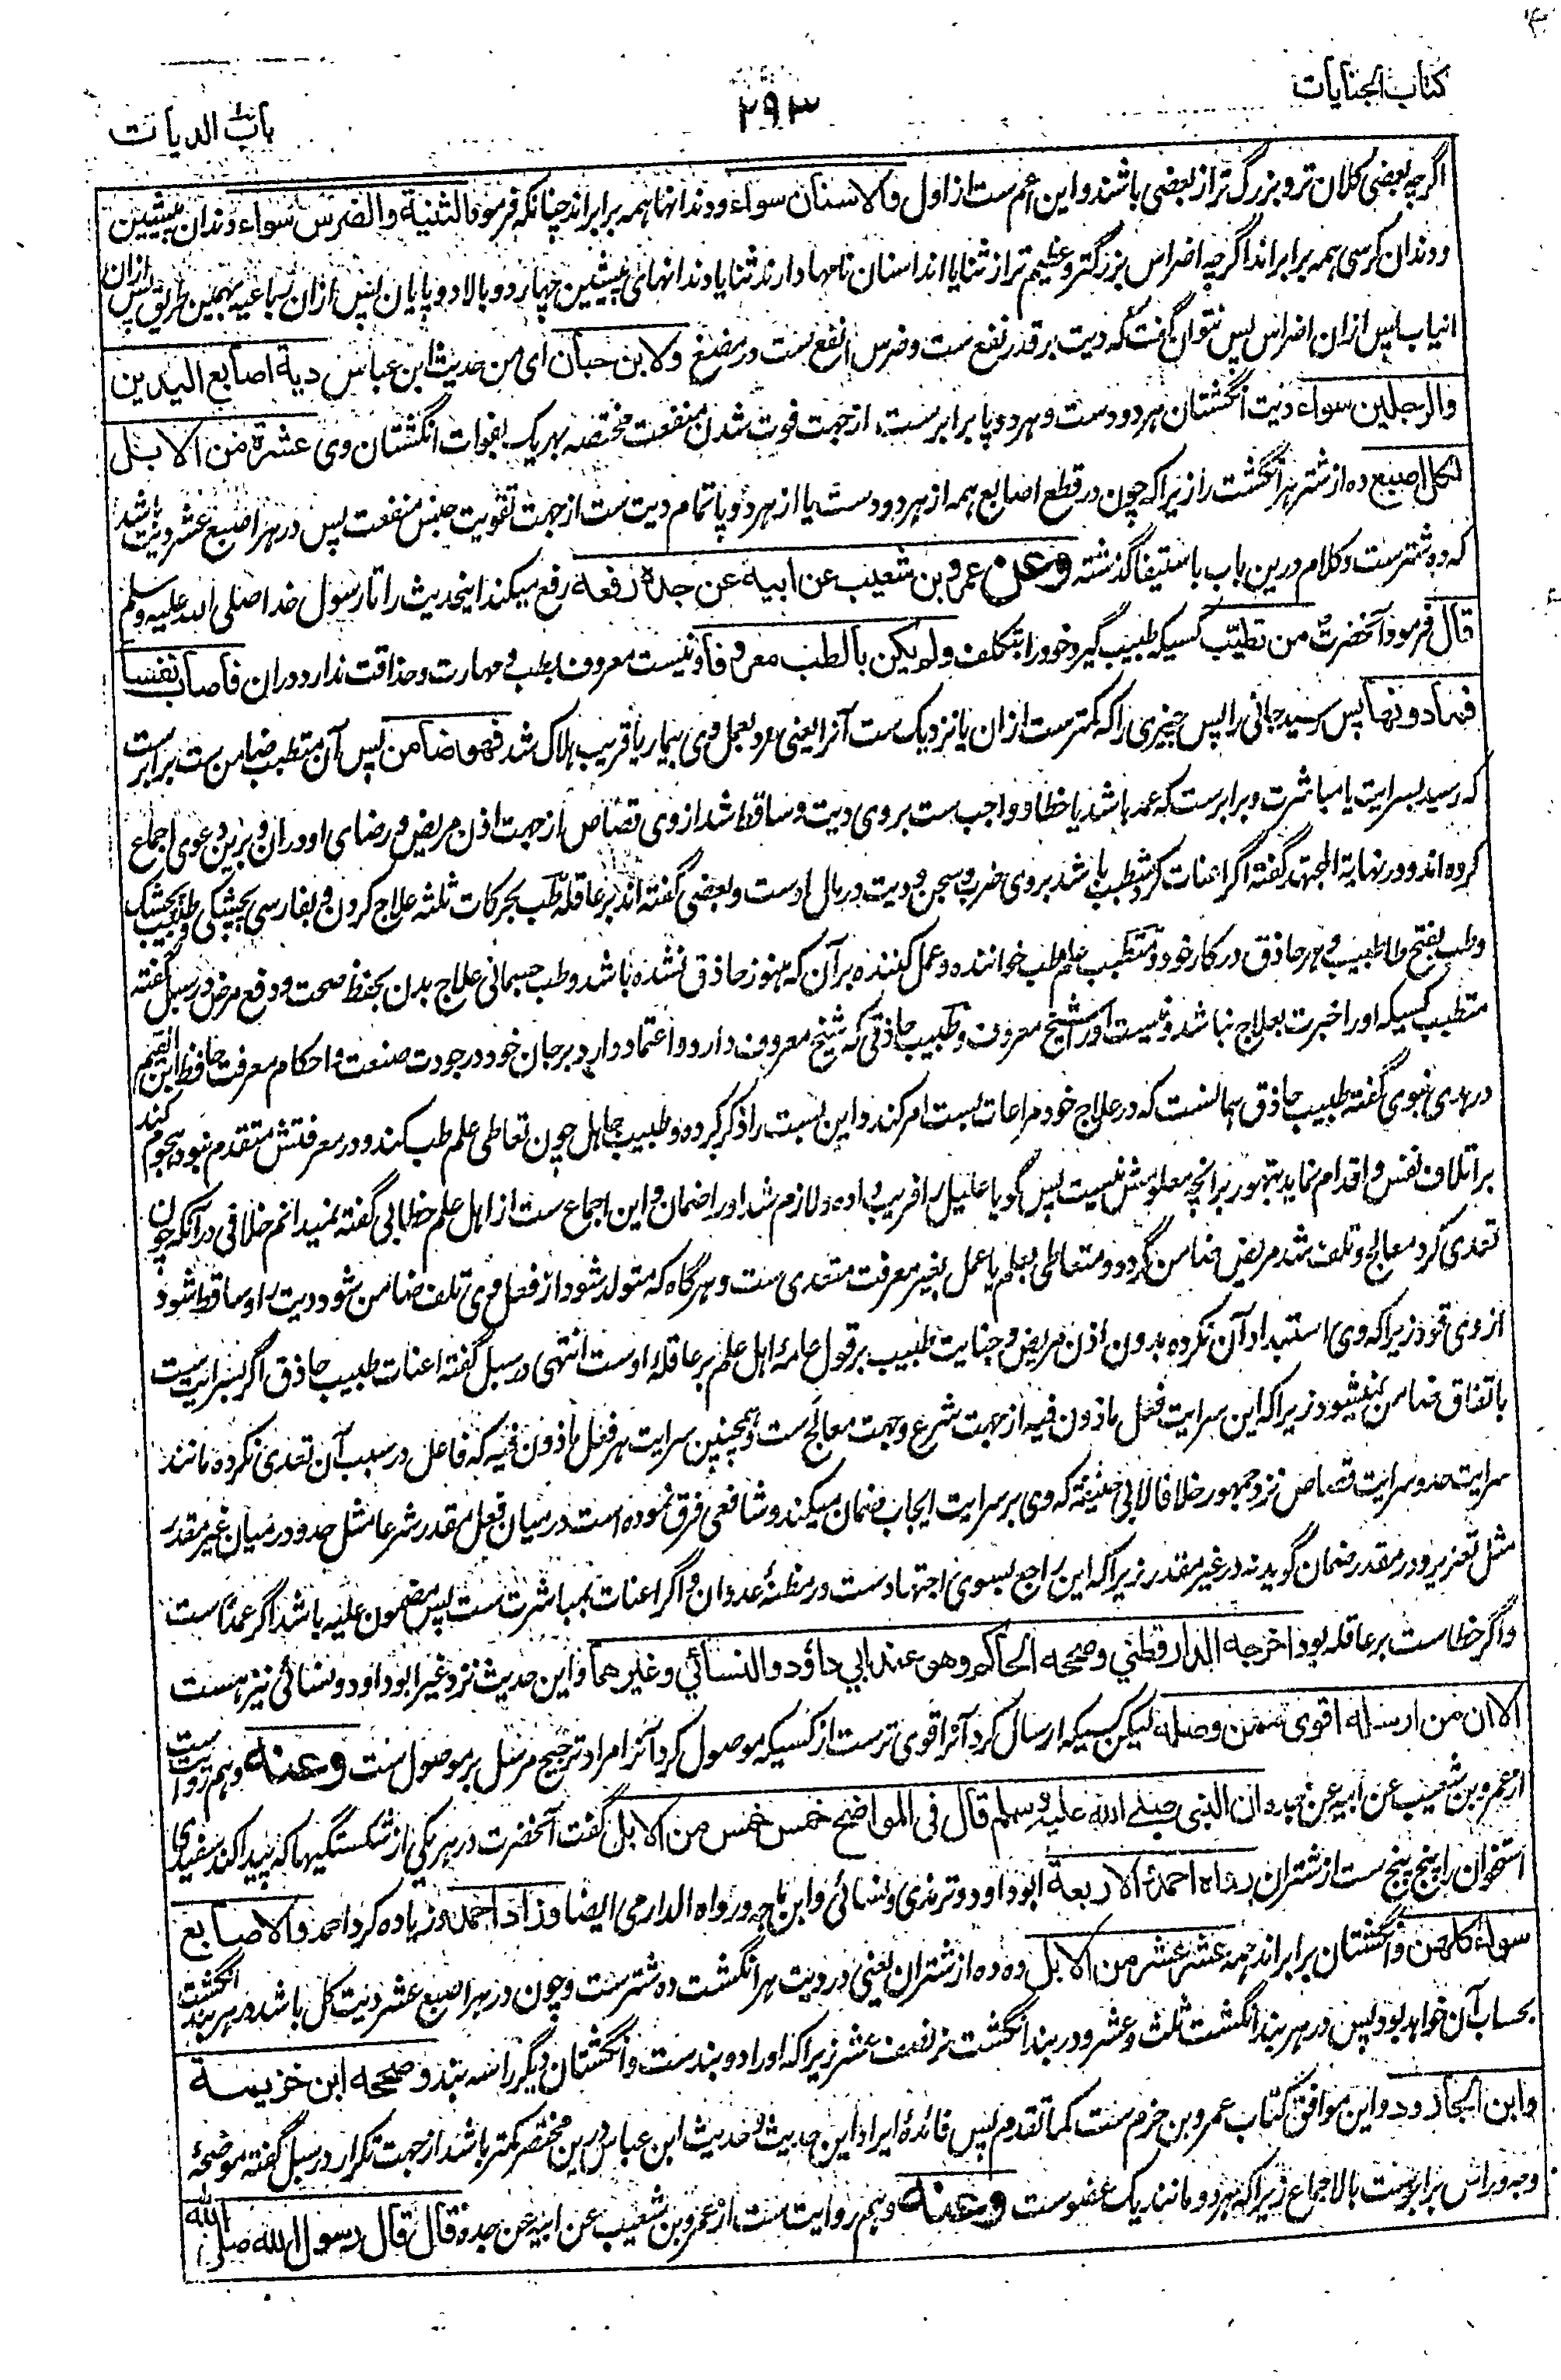 كتاب الجنايات
٢٩٣
باب الديات
اگرچه بعضی کلان تر و بزرگ تر از بعضی باشند و این اعم ست از اول والاسنان سواء و دندانها همه برابر اند چنانکه فرمود الثنية والضرس سواء دندان پیشین
و دندان کرسی همه برابر اند اگرچه اضراس بزرگتر و عظیم تر از ثنایا اند اسنان نامها دارند ثنایا دندانهای پیشین چهار دو بالا دو پایان پس ازان رباعیه بهمین طریق پس ازان
انیاب پس ازان اضراس پس نتوان گفت که دیت بر قدر نفع ست و ضرس انفع ست در مضغ ولابن حبان ای من حدیث ابن عباس دية اصابع اليدين
والرجلين سواء دیت انگشتان هر دو دست و هر دو پا برابر ست از جهت فوت شدن منفعت مختصه بهر یک بفوات انگشتان وی عشرة من الابل
لكل اصبع ده از شتر هر انگشت را زیرا که چون در قطع اصابع همه از هر دو دست یا از هر دو پا تمام دیت ست از جهت تفویت جنس منفعت پس در هر اصبع عشر دیت باشد
که ده شتر ست و کلام درین باب باستیفا گذشته وعن عمرو بن شعيب عن ابيه عن جده رفعه رفع میکند اینحدیث را تا رسول خدا صلی الله علیه وسلم
قال فرمود آنحضرت من تطبّب کسیکه طبیب گیرد خود را بتکلف ولم يكن بالطب معروفا و نیست معروف بطب و مهارت و حذاقت ندارد دران فاصاب نفسا
فما دونها پس رسید جانی را پس چیزی را که کمترست ازان یا نزدیک ست آنرا یعنی مرد بعمل وی بیمار یا قریب بهلاک شد فهو ضامن پس آن متطبب ضامن ست برابر ست
که رسید بسرایت یا مباشرت و برابرست که عمد باشد یا خطا و واجب ست بر وی دیت و ساقط شد از وی قصاص از جهت اذن مریض و رضای او دران و برین دعوی اجماع
کرده اند و در نهایة المجتهد گفته اگر اعنات کرد متطبب باشد بر وی ضرب و سجن و دیت در مال اوست و بعضی گفته اند بر عاقله طب بحرکات ثلثه علاج کردن و بفارسی بجشکی و طبیب بجشک
و طب بفتح طا طبیب و هر حاذق در کار خود و متطبب علم طب خواننده و عمل کننده بر آن که هنوز حاذق نشده باشد و طب جسمانی علاج بدن بحفظ صحت و دفع مرض در سبل گفته
متطبب کسیکه او را خبرت بعلاج نباشد و نیست او را شیخ معروف و طبیب حاذقی که شیخ معروف دارد و اعتماد دارد بر جان خود در جودت صنعت و احکام معرفت حافظ ابن القیم
در هدی نبوی گفته طبیب حاذق همانست که در علاج خود مراعات بست امر کند و این بست را ذکر کرده و طبیب جاهل چون تعاطی علم طب کند و در معرفتش متقدم نبود هجوم کند
بر اتلاف نفس و اقدام نماید بتهور بر آنچه معلومش نیست پس گویا علیل را فریب داده و لازم شد او را ضمان و این اجماع ست از اهل علم خطابی گفته نمیدانم خلافی در آنکه چون
تعدی کرد معالج و تلف شد مریض ضامن گردد و متعاطی بعلم یا عمل بغیر معرفت متعدی ست و هرگاه که متولد شود از فعل وی تلف ضامن شود دیت را و ساقط شود
از وی قود زیرا که وی استبداد آن نکرده بدون اذن مریض و جنایت طبیب بر قول عامۀ اهل علم بر عاقلۀ اوست انتهی در سبل گفته اعنات طبیب حاذق اگر بسرایت ست
باتفاق ضامن نمیشود زیرا که این سرایت فعل ماذون فیه از جهت شرع و جهت معالج ست و همچنین سرایت هر فعل ماذون فیه که فاعل در سبب آن تعدی نکرده مانند
سرایت حد و سرایت قصاص نزد جمهور خلافا لابی حنیفه که وی بر سرایت ایجاب ضمان میکند و شافعی فرق نموده است در میان فعل مقدر شرعا مثل حد و در میان غیر مقدر
مثل تعزیر و در مقدر ضمان گوید نه در غیر مقدر زیرا که این راجع بسوی اجتهاد ست در مظنۀ عدوان و اگر اعنات بمباشرت ست پس مضمون علیه باشد اگر عمداست
و اگر خطاست بر عاقله بود اخرجه الدارقطني وصححه الحاكم وهو عند ابي داؤد والنسائي وغيرهما و این حدیث نزد غیر ابو داود و نسائی نیز هست
الا ان من ارسله اقوى ممن وصله لیکن کسیکه ارسال کرد آنرا قوی ترست از کسیکه موصول کرد آنرا مراد ترجیح مرسل بر موصول ست وعنه و هم روایت ست
از عمرو بن شعیب عن ابیه عن جده ان النبی صلى الله عليه وسلم قال فى المواضح خمس خمس من الابل گفت آنحضرت در هر یکی از شکستگیها که پیدا کند سفیدی
استخوان را پنج پنج ست از شتران رواه احمد والاربعة ابو داود و ترمذی و نسائی و ابن ماجه و رواه الدارمی ایضا وزاد احمد و زیاده کرد احمد والاصابع
سواء كلهن و انگشتان برابر اند همه عشر عشر من الابل ده ده از شتران یعنی در دیت هر انگشت ده شتر ست و چون در هر اصبع عشر دیت کل باشد در هر بند انگشت
بحساب آن خواهد بود پس در هر بند انگشت ثلث عشر و در بند انگشت نر نصف عشر زیرا که او را دو بند ست و انگشتان دیگر را سه بند وصححه ابن خزيمة
وابن الجارود و این موافق کتاب عمرو بن حزم ست کما تقدم پس فائدۀ ایراد این حدیث و حدیث ابن عباس درین مختصر کمتر باشد از جهت تکرار در سبل گفته موضحۀ
وجه و راس برابرست بالاجماع زیرا که هر دو مانند یک عضوست وعنه و هم روایت ست از عمرو بن شعیب عن ابیه عن جده قال قال رسول الله صلى الله